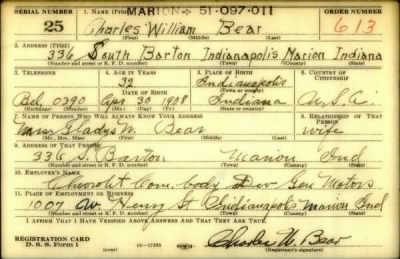 SERIAL NUMBER 1. NAME (PRINT) MARION 51-097-011 ORDER NUMBER
25 Charles William Bear 613
(First) (Middle) (Last)
2. ADDRESS (PRINT)
336 South Barton Indianapolis Marion Indiana
(Number and street or R. F. D. number) (Town) (County) (State)
3. TELEPHONE 4. AGE IN YEARS 5. PLACE OF BIRTH 6. COUNTRY OF CITIZENSHIP
32 Indianapolis
Bel. 0290 Apr 30 1908 Indiana U.S.A.
(Exchange) (Number) (Mo.) (Day) (Yr.) (State or country)
7. NAME OF PERSON WHO WILL ALWAYS KNOW YOUR ADDRESS 8. RELATIONSHIP OF THAT PERSON
Gladys M. Bear wife
(Mr., Mrs., Miss) (First) (Middle) (Last)
9. ADDRESS OF THAT PERSON
336 S. Barton Marion Ind
(Number and street or R. F. D. number) (Town) (County) (State)
10. EMPLOYER'S NAME
Chevrolet Com. body Div Gen Motors
11. PLACE OF EMPLOYMENT OR BUSINESS
1007 W. Henry St. Indianapolis Marion Ind
(Number and street or R. F. D. number) (Town) (County) (State)
I AFFIRM THAT I HAVE VERIFIED ABOVE ANSWERS AND THAT THEY ARE TRUE.
REGISTRATION CARD
D. S. S. Form 1 Charles W. Bear
(Registrant's signature)